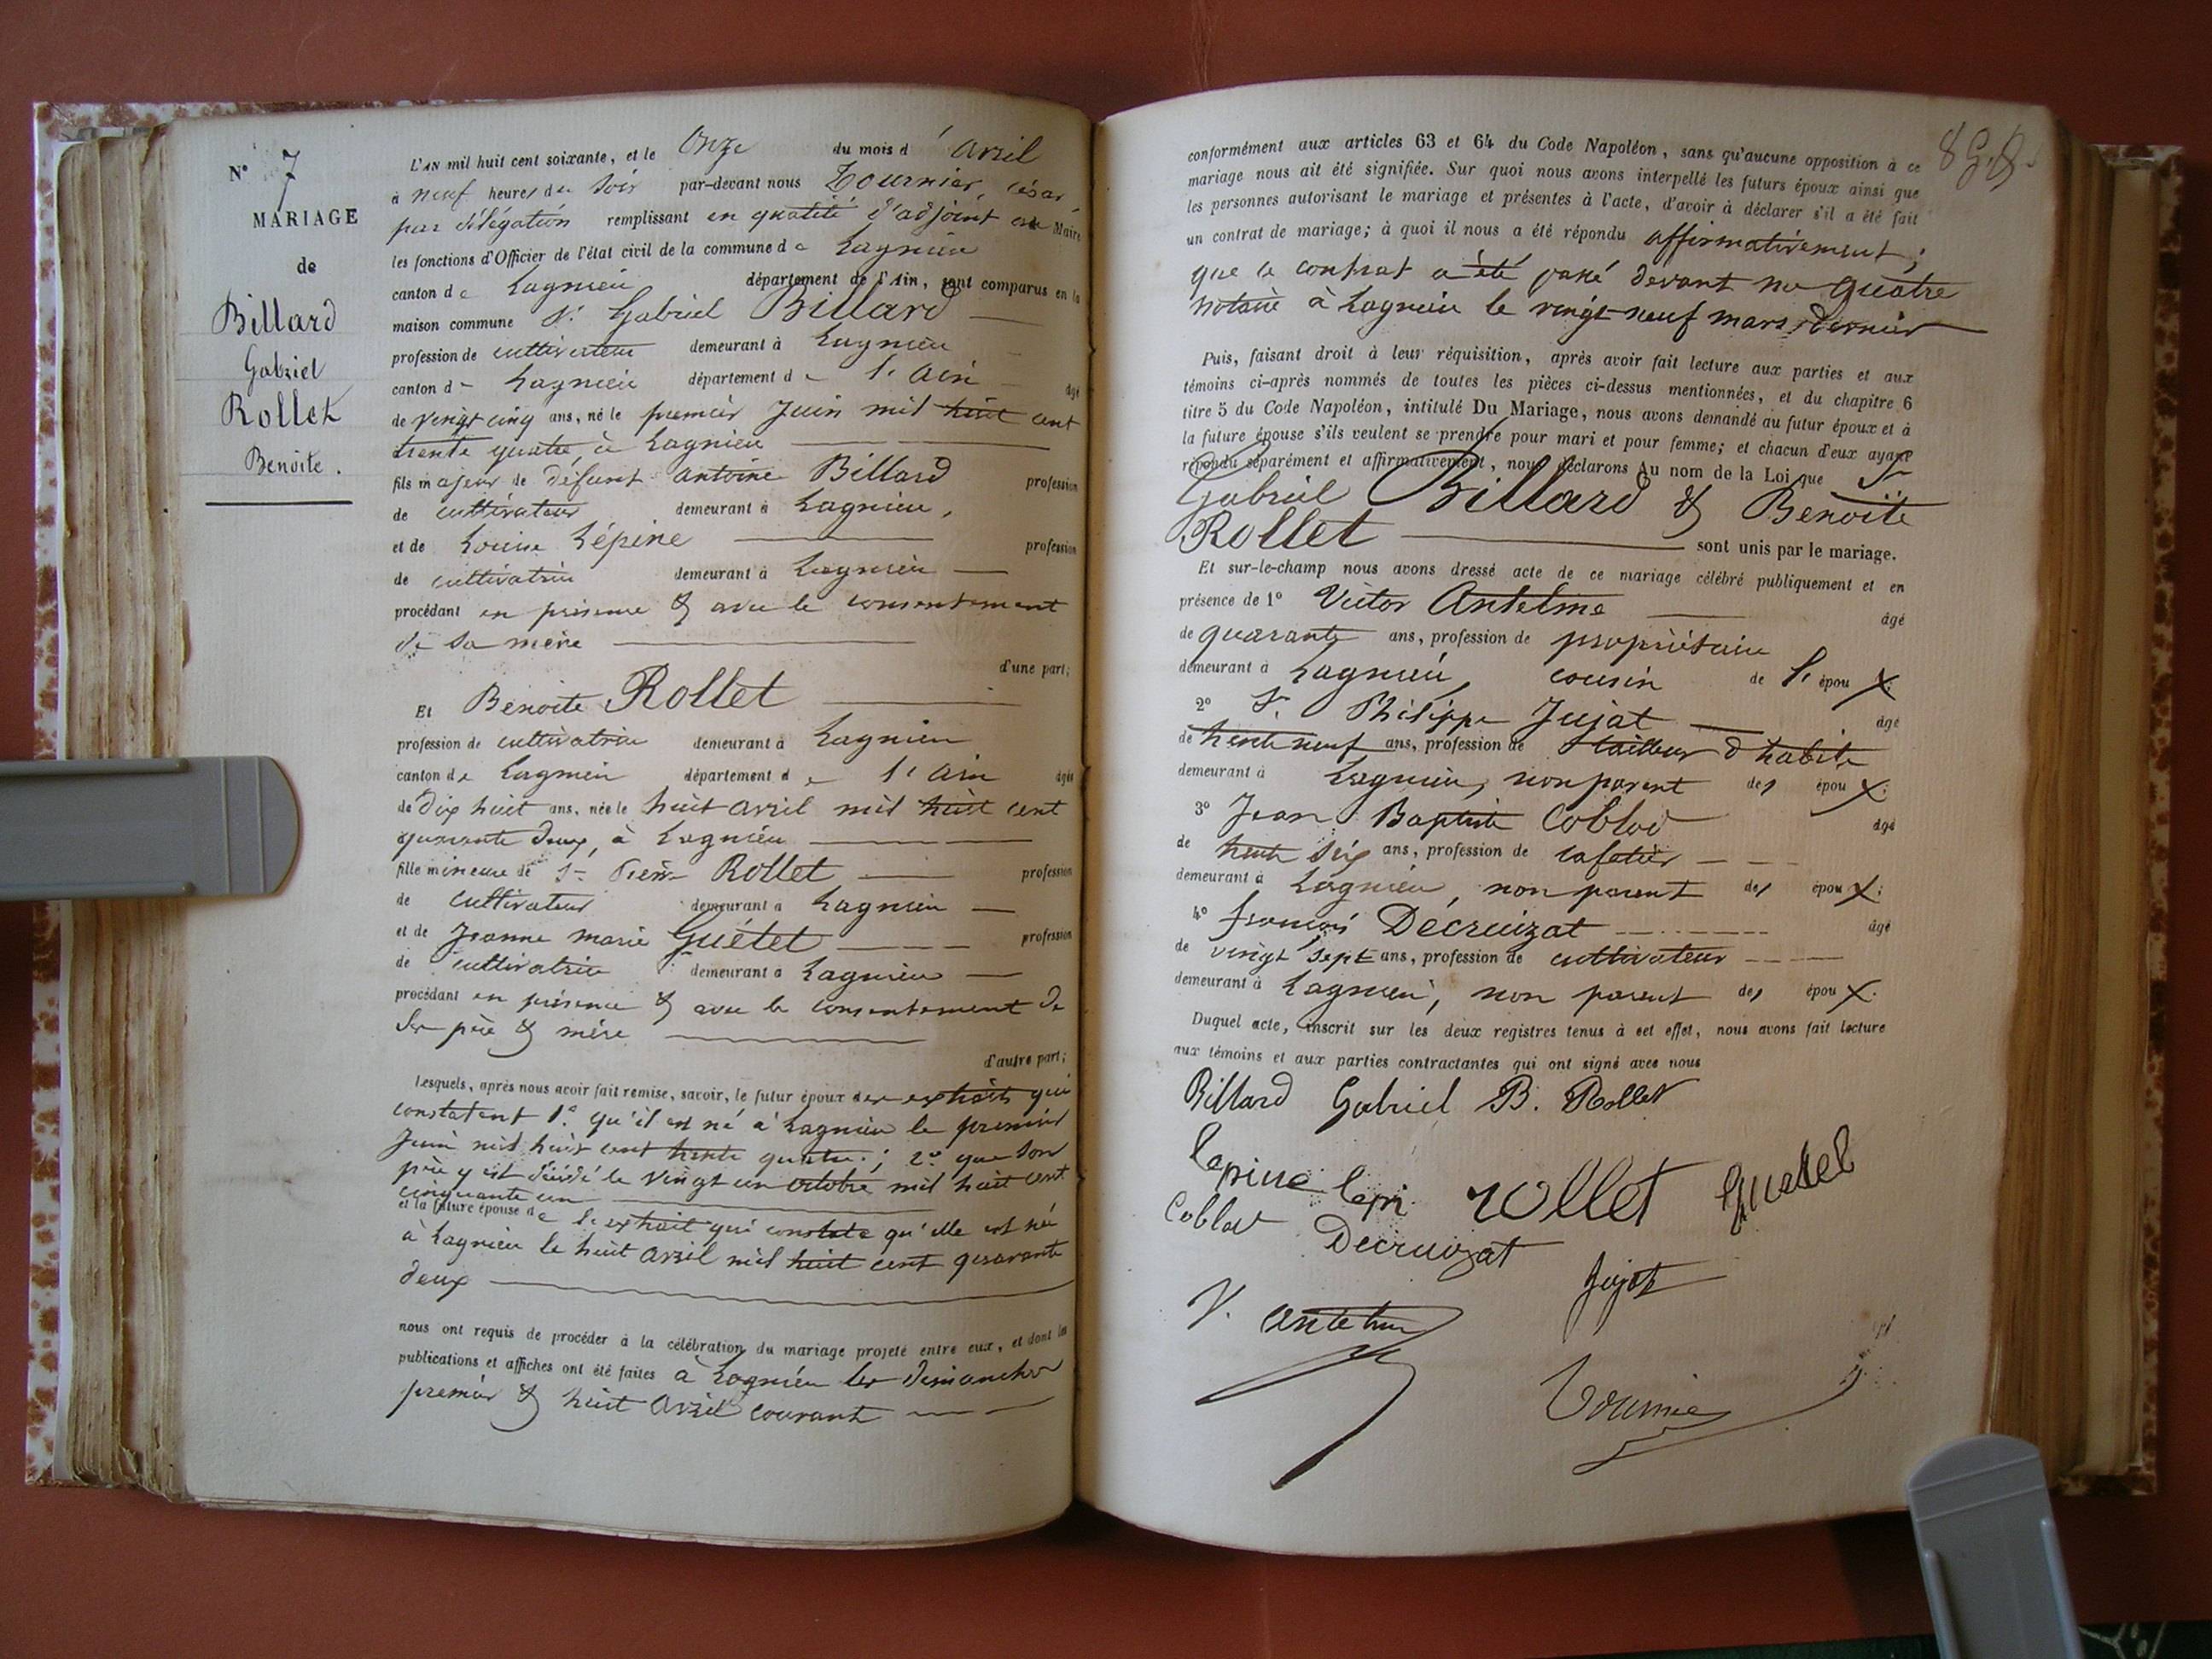 N° 7
MARIAGE
de
Billard
Gabriel
Rollet
Benoite.
L'AN mil huit cent soixante, et le Onze du mois d'avril
à neuf heures du soir par-devant nous Tournier, César
par délégation remplissant en qualité d'adjoint au Maire
les fonctions d'Officier de l'état civil de la commune de Lagnieu
canton de Lagnieu département de l'Ain, sont comparus en la
maison commune Sr. Gabriel Billard
profession de cultivateur demeurant à Lagnieu
canton de Lagnieu département de l'Ain âgé
de vingt cinq ans, né le premier Juin mil huit cent
trente quatre, à Lagnieu
fils majeur de défunt Antoine Billard profession
de cultivateur demeurant à Lagnieu,
et de Louise Lépine profession
de cultivatrice demeurant à Lagnieu
procédant en présence & avec le consentement
de sa mère
d'une part;
Et Benoite Rollet
profession de cultivatrice demeurant à Lagnieu
canton de Lagnieu département de l'Ain âgée
de dix huit ans, née le huit avril mil huit cent
quarante deux, à Lagnieu
fille mineure de Sr Pierre Rollet profession
de cultivateur demeurant à Lagnieu
et de Jeanne Marie Guétet profession
de cultivatrice demeurant à Lagnieu
procédant en présence & avec le consentement de
ses père & mère
d'autre part;
Lesquels, après nous avoir fait remise, savoir, le futur époux des extraits qui
constatent 1° qu'il est né à Lagnieu le premier
Juin mil huit cent trente quatre; 2° que son
père y est décédé le vingt un octobre mil huit cent
cinquante un
et la future épouse de l'extrait qui constate qu'elle est née
à Lagnieu le huit avril mil huit cent quarante
deux
nous ont requis de procéder à la célébration du mariage projeté entre eux, et dont les
publications et affiches ont été faites à Lagnieu les dimanches
premier & huit avril courant
conformément aux articles 63 et 64 du Code Napoléon, sans qu'aucune opposition à ce
mariage nous ait été signifiée. Sur quoi nous avons interpellé les futurs époux ainsi que
les personnes autorisant le mariage et présentes à l'acte, d'avoir à déclarer s'il a été fait
un contrat de mariage; à quoi il nous a été répondu affirmativement;
que le contrat a été passé devant Me Quatre
notaire à Lagnieu le vingt-neuf mars dernier
Puis, faisant droit à leur réquisition, après avoir fait lecture aux parties et aux
témoins ci-après nommés de toutes les pièces ci-dessus mentionnées, et du chapitre 6
titre 5 du Code Napoléon, intitulé Du Mariage, nous avons demandé au futur époux et à
la future épouse s'ils veulent se prendre pour mari et pour femme; et chacun d'eux ayant
répondu séparément et affirmativement, nous déclarons Au nom de la Loi que Sr
Gabriel Billard & Benoite
Rollet sont unis par le mariage.
Et sur-le-champ nous avons dressé acte de ce mariage célébré publiquement et en
présence de 1° Victor Antelme âgé
de quarante ans, profession de propriétaire
demeurant à Lagnieu, cousin de l'épou x;
2° Sr. Philippe Jujat âgé
de trente neuf ans, profession de tailleur d'habits
demeurant à Lagnieu, non parent des époux;
3° Jean Baptiste Coblod âgé
de trente six ans, profession de cafetier
demeurant à Lagnieu, non parent des époux;
4° François Décruizat âgé
de vingt sept ans, profession de cultivateur
demeurant à Lagnieu, non parent des époux.
Duquel acte, inscrit sur les deux registres tenus à cet effet, nous avons fait lecture
aux témoins et aux parties contractantes qui ont signé avec nous
Billard Gabriel B. Rollet
lepine lepi rollet Guetet
Coblod Decruizat
Jujat
V. Antelme
Tournier